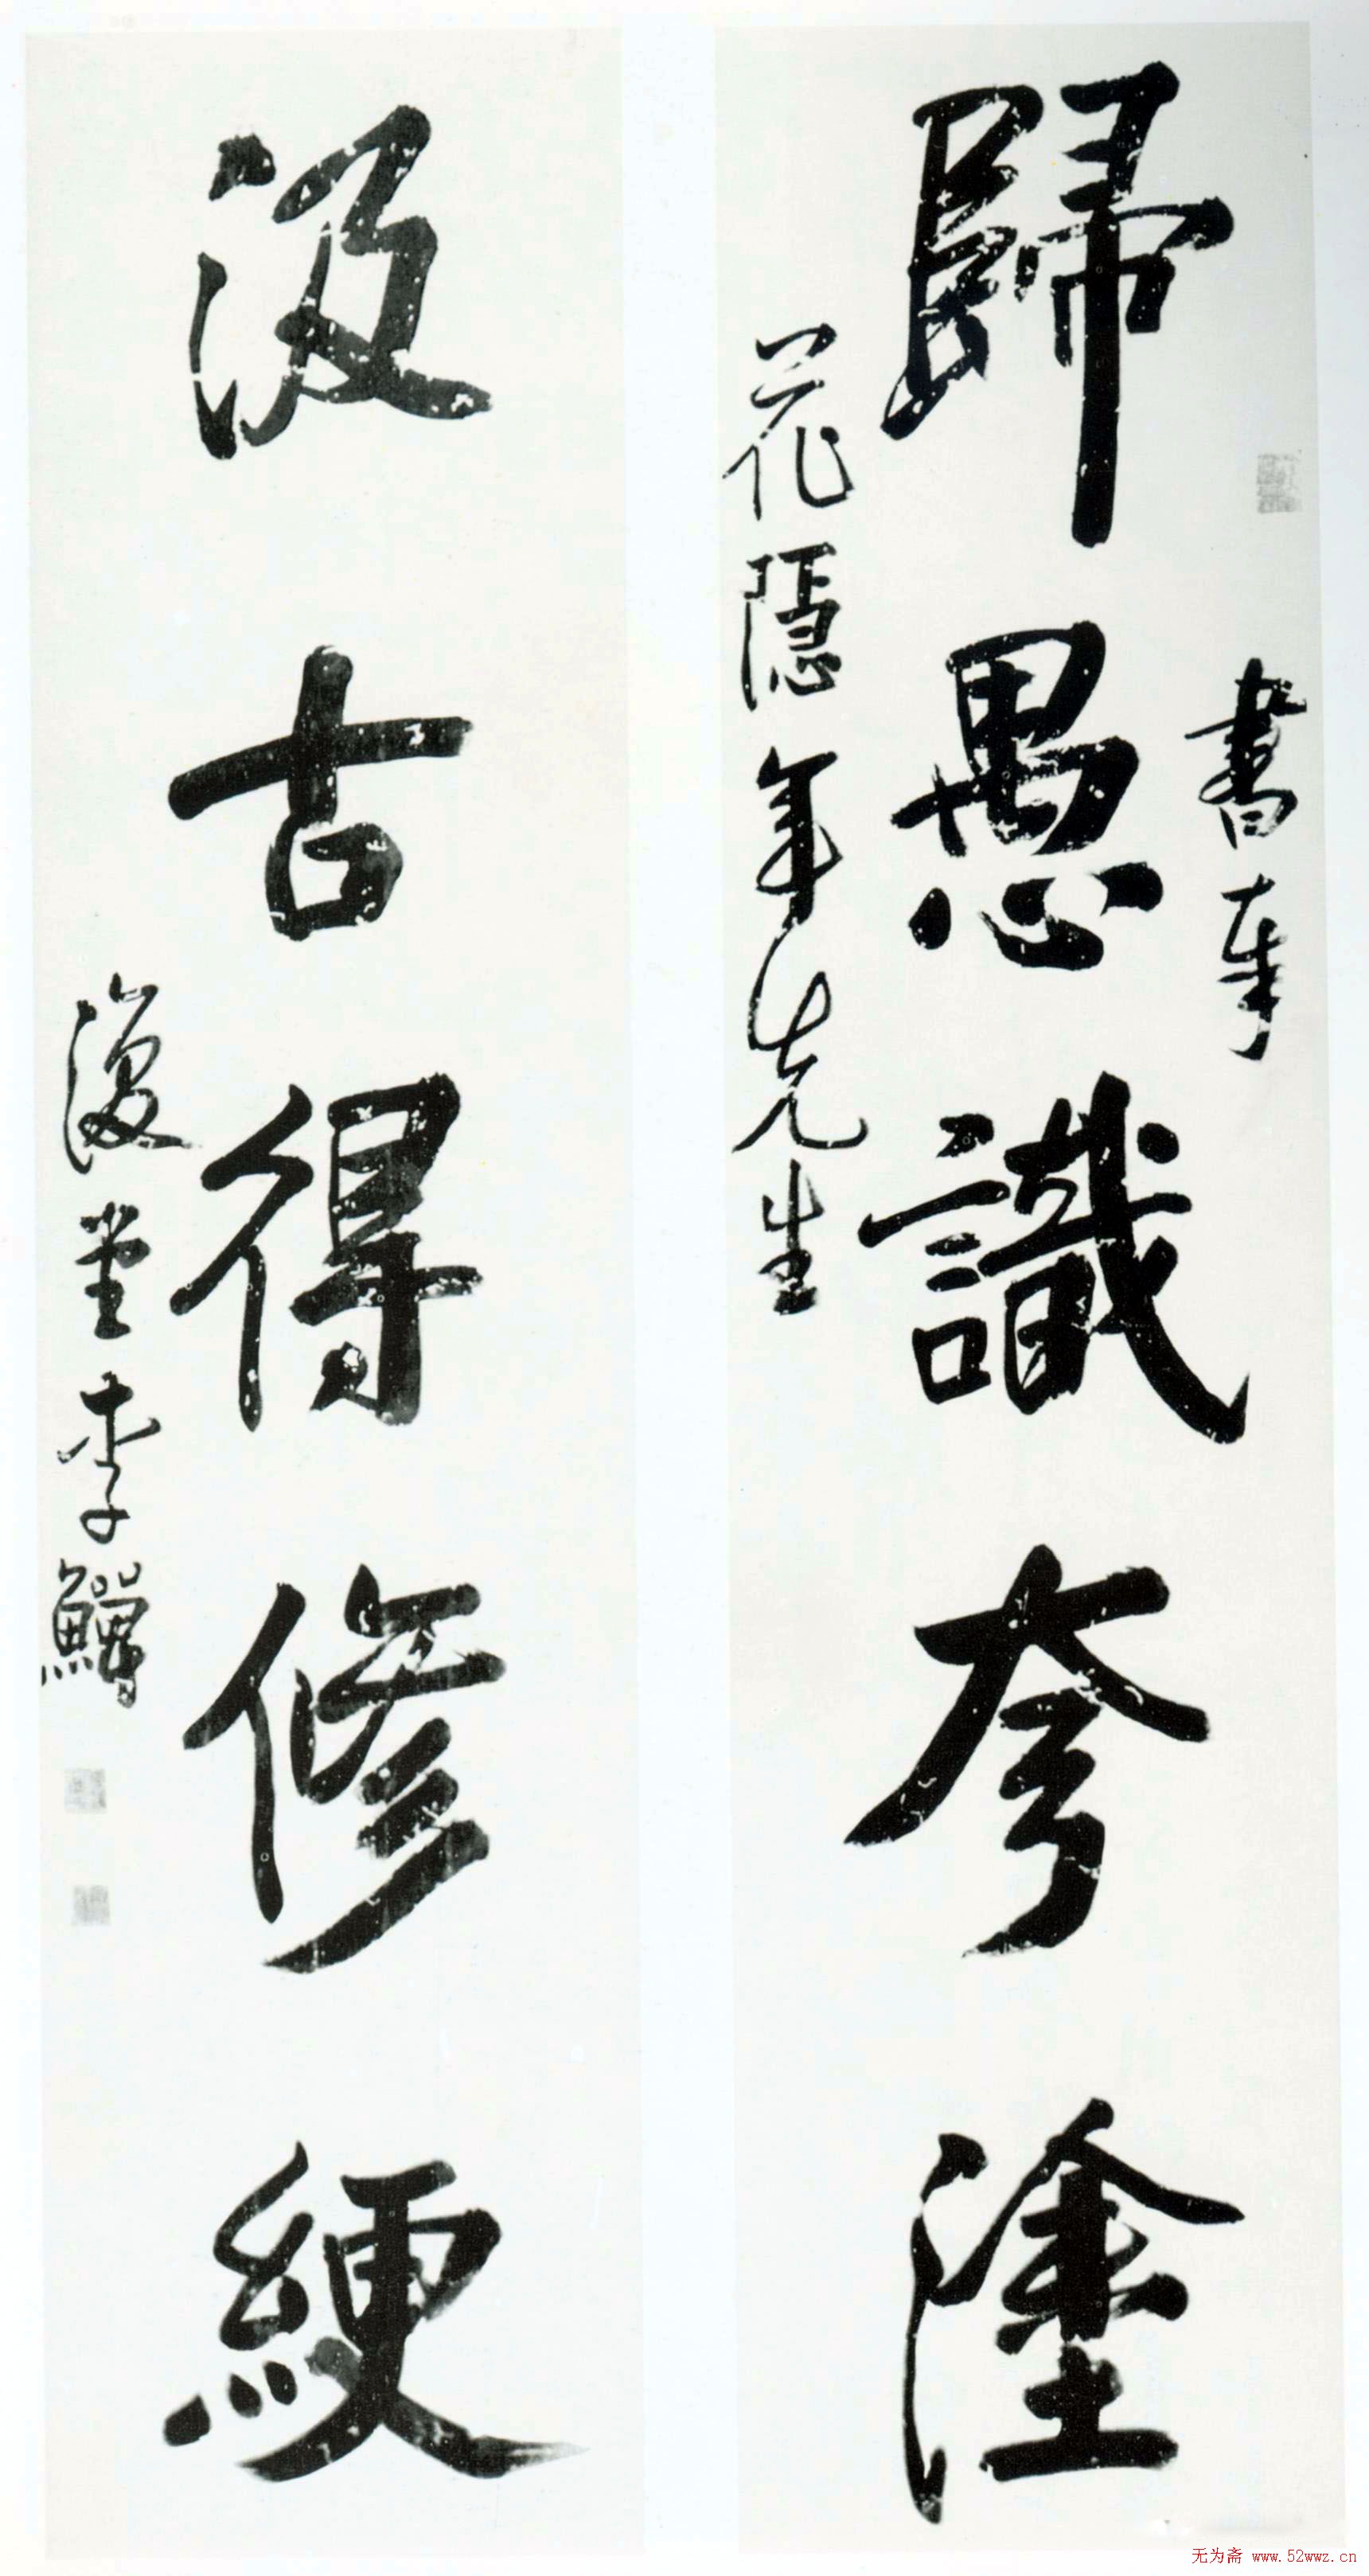 書奉
歸愚識夸塗
花隱年先生
汲古得修綆
復堂李鱓
无为斋 www.52wwz.cn